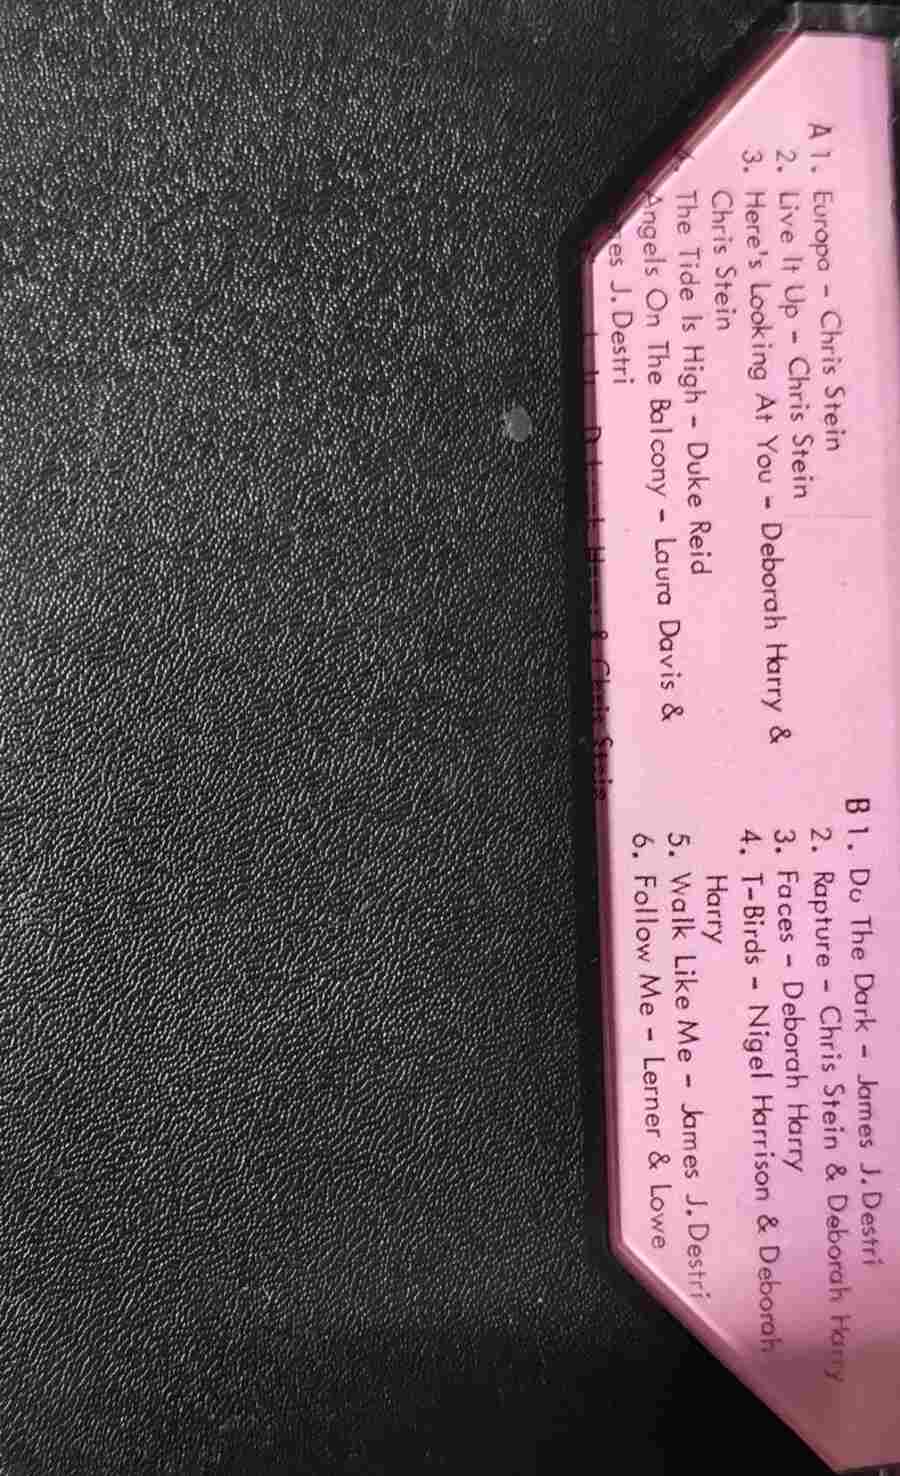 A 1. Europa - Chris Stein
2. Live It Up - Chris Stein
3. Here's Looking At You - Deborah Harry &
Chris Stein
The Tide Is High - Duke Reid
Angels On The Balcony - Laura Davis &
J. Destri
Harry & Chris Stein
B 1. Do The Dark - James J. Destri
2. Rapture - Chris Stein & Deborah Harry
3. Faces - Deborah Harry
4. T-Birds - Nigel Harrison & Deborah
Harry
5. Walk Like Me - James J. Destri
6. Follow Me - Lerner & Lowe